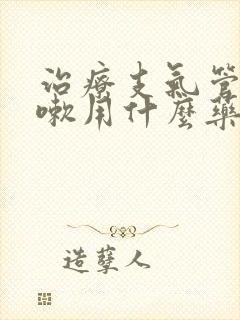 治疗支气管
嗽用什麼藥
造孽人